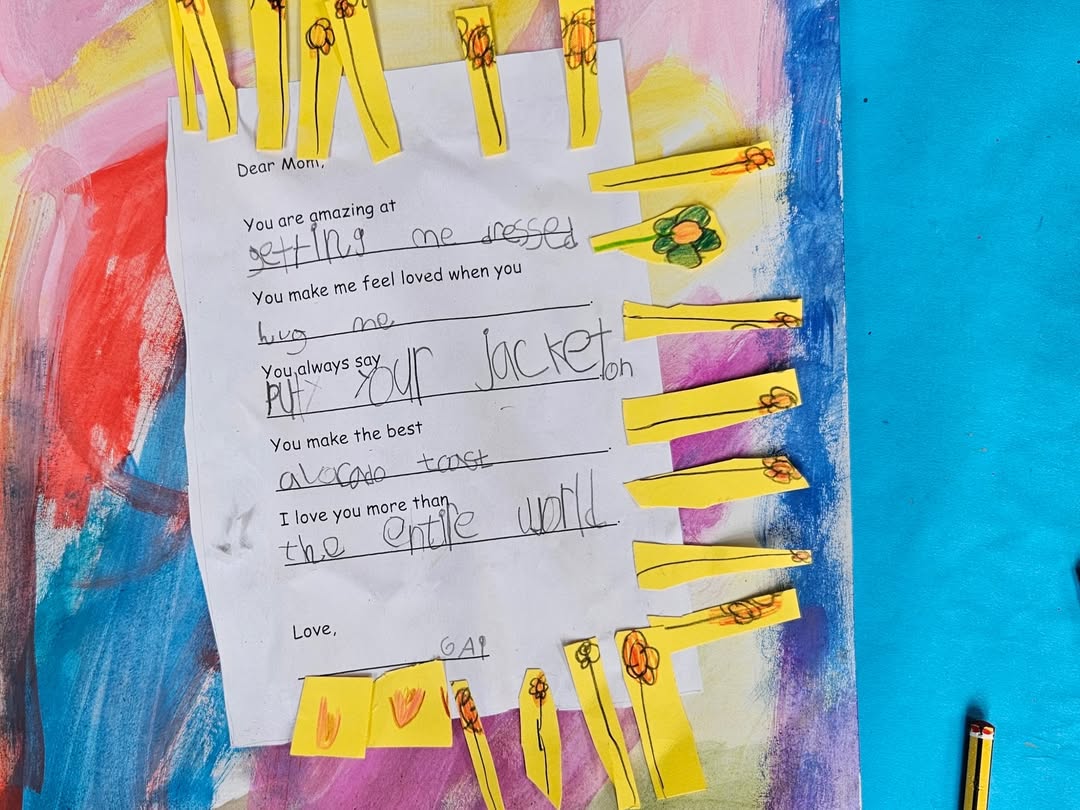 Dear Mom,
You are amazing at
getting me dressed
You make me feel loved when you
hug me.
You always say
Put your jacket.
on
You make the best
avocado toast.
I love you more than
the entire world.
Love,
GAP